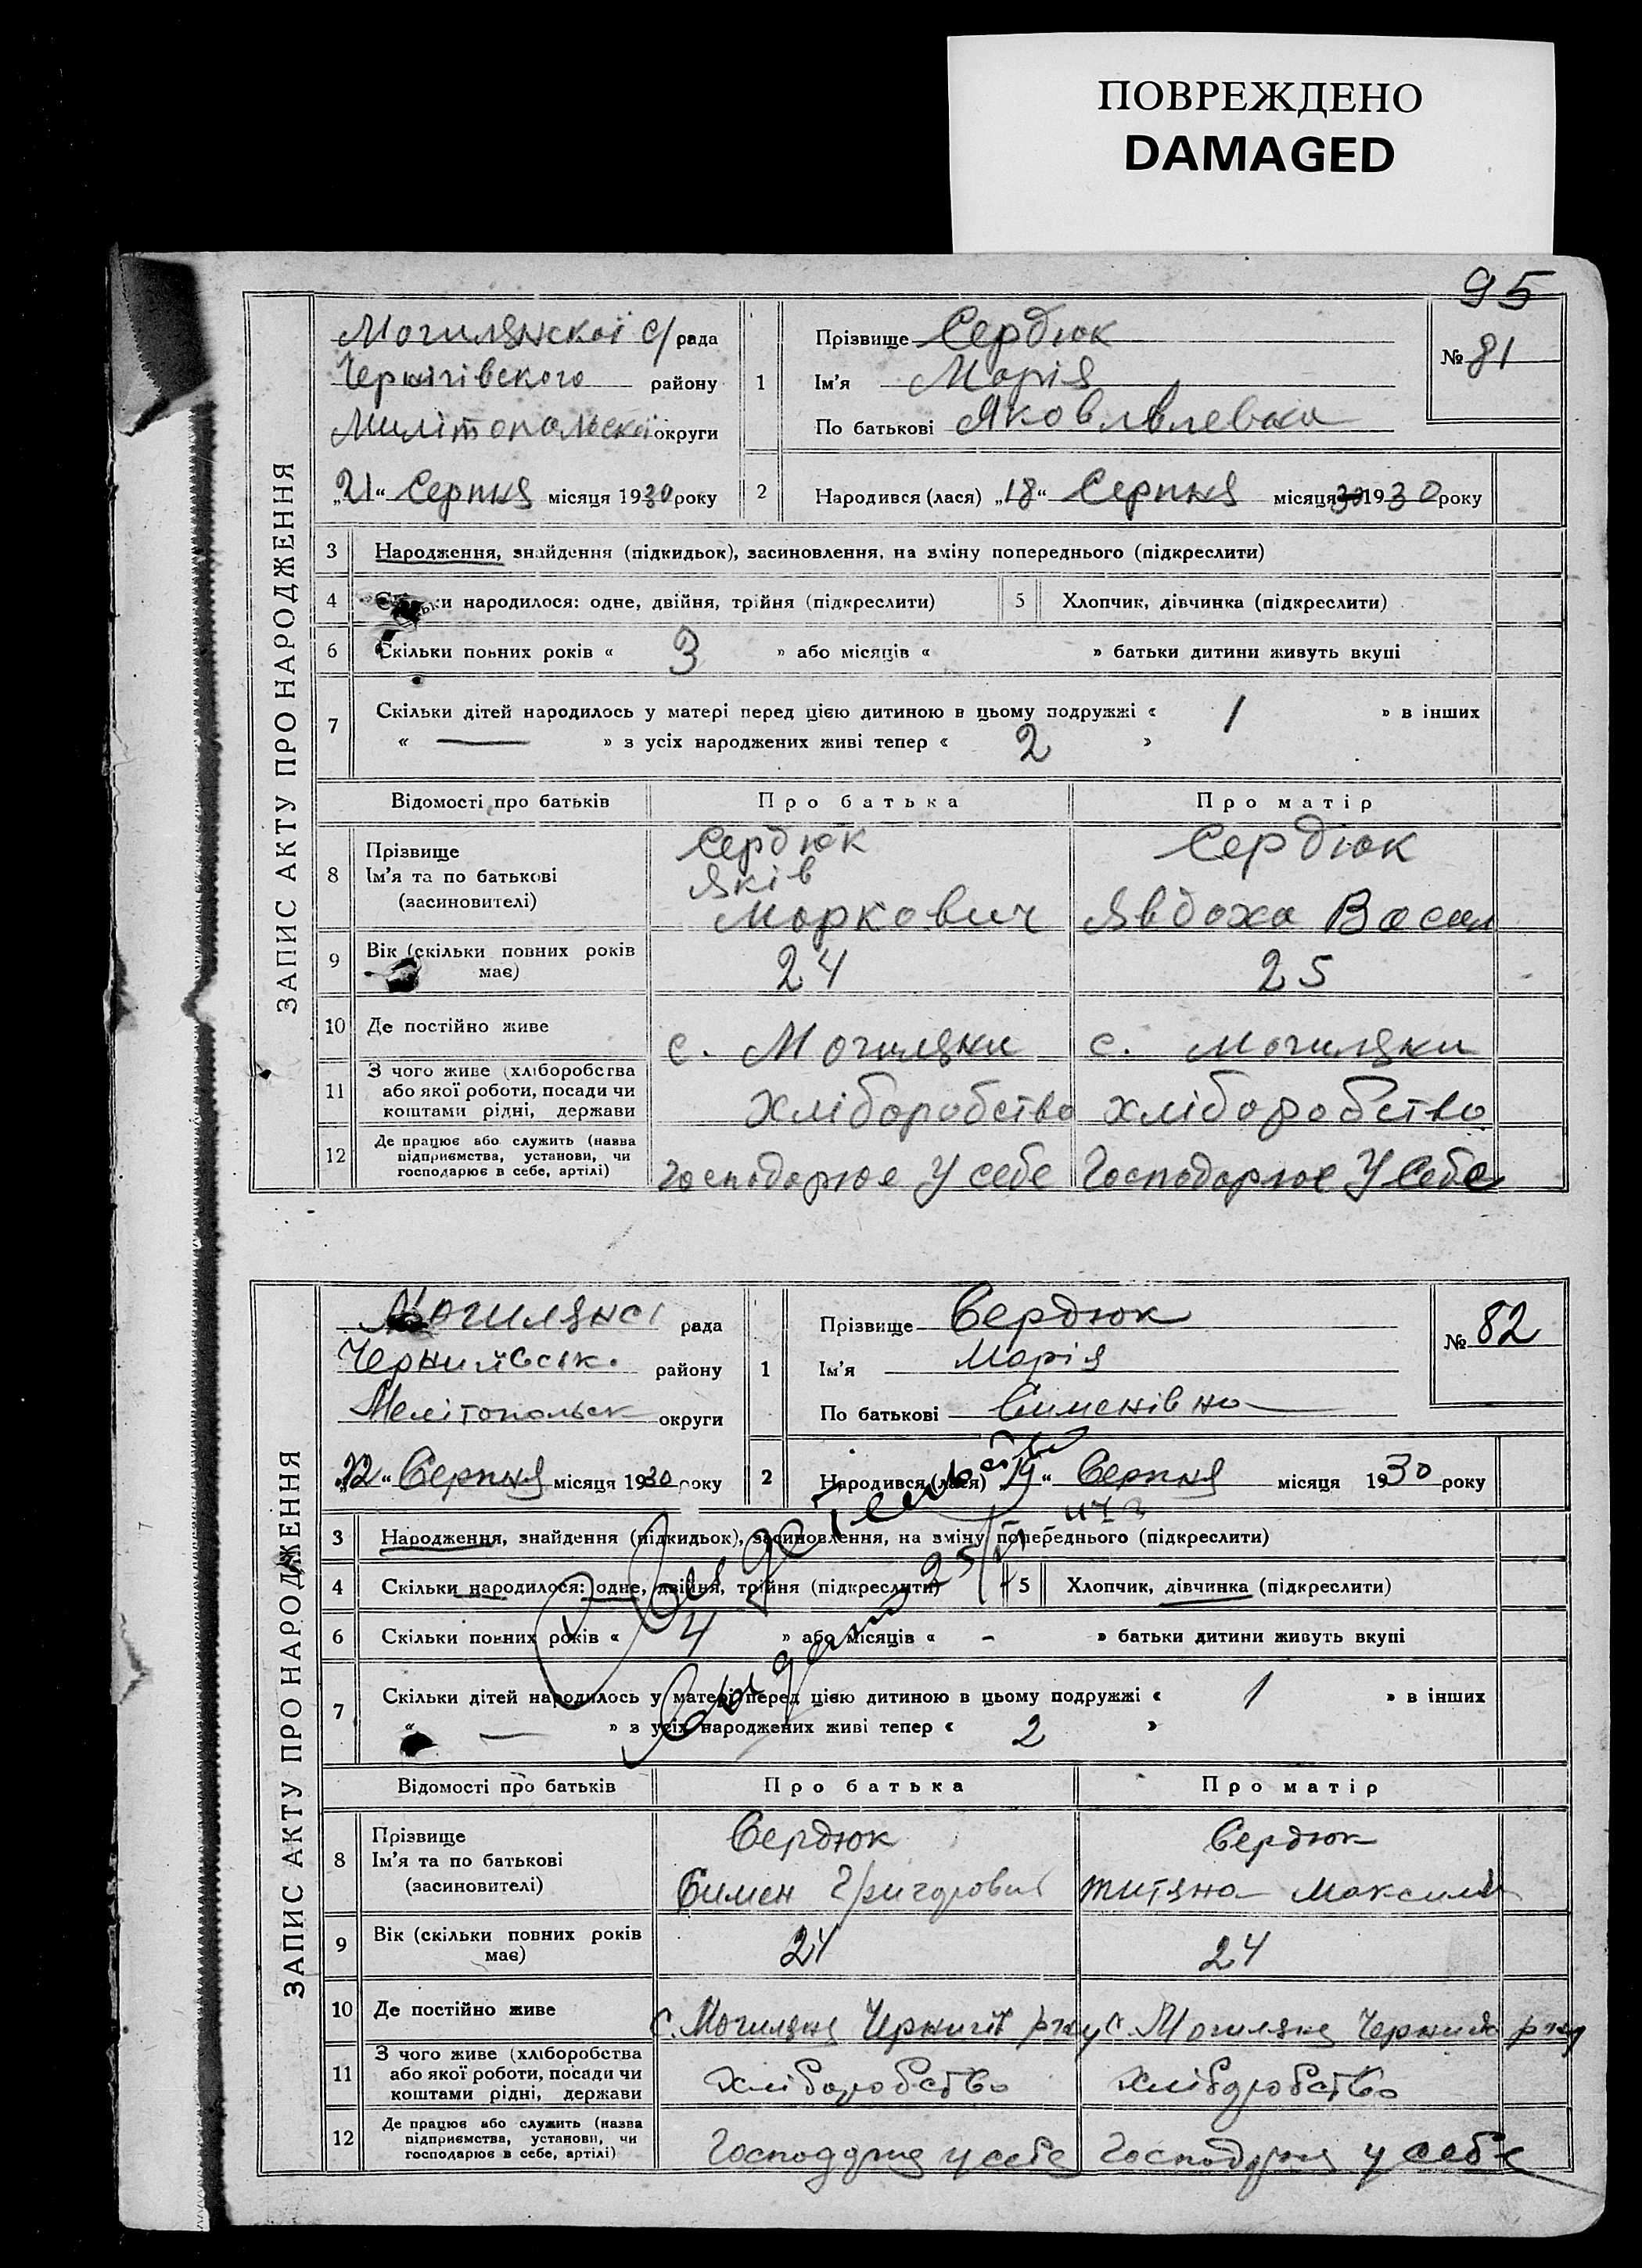 ПОВРЕЖДЕНО
DAMAGED
95
ЗАПИС АКТУ ПРО НАРОДЖЕННЯ
Могилянскої с/рада
Чернігівского району
Милітопольскої округи
„21“ Серпня місяця 1930 року
1
Прізвище Сердюк
Ім’я Марія
По батькові
№ 81
2
Народився (лася) „18“ Серпня місяця 1930 року
3 Народження, знайдення (підкидьок), засиновлення, на зміну попереднього (підкреслити)
4 Скільки народилося: одне, двійня, трійня (підкреслити)
5 Хлопчик, дівчинка (підкреслити)
6 Скільки повних років « 3 » або місяців « » батьки дитини живуть вкупі
7 Скільки дітей народилось у матері перед цією дитиною в цьому подружжі « 1 » в інших
« — » з усіх народжених живі тепер « 2 »
Відомості про батьків Про батька Про матір
8 Прізвище
Ім’я та по батькові
(засиновителі)
Сердюк
Яків
Маркович
Сердюк
Явдоха Васил
9 Вік (скільки повних років
має)
24 25
10 Де постійно живе с. Могиляни с. Могиляни
11 З чого живе (хліборобства
або якої роботи, посади чи
коштами рідні, держави
хліборобство хліборобство
12 Де працює або служить (назва
підприємства, установи, чи
господарює в себе, артілі)
Господорює У себе Господорює У себе
ЗАПИС АКТУ ПРО НАРОДЖЕННЯ
Могилянс рада
району
Мелітопольск округи
„22“ Серпня місяця 1930 року
1
Прізвище Сердюк
Ім’я Марія
По батькові Сименівна
№ 82
2
Народився (лася) „19“ Серпня місяця 1930 року
3 Народження, знайдення (підкидьок), засиновлення, на зміну попереднього (підкреслити)
4 Скільки народилося: одне, двійня, трійня (підкреслити)
5 Хлопчик, дівчинка (підкреслити)
6 Скільки повних років « 4 » або місяців « - » батьки дитини живуть вкупі
7 Скільки дітей народилось у матері перед цією дитиною в цьому подружжі « 1 » в інших
« — » з усіх народжених живі тепер « 2 »
Відомості про батьків Про батька Про матір
8 Прізвище
Ім’я та по батькові
(засиновителі)
Сердюк
Симен Григорович
Сердюк
Титяна Максим
9 Вік (скільки повних років
має)
24 24
10 Де постійно живе с. Могиляни с. Могиляни
11 З чого живе (хліборобства
або якої роботи, посади чи
коштами рідні, держави
хліборобство хліборобство
12 Де працює або служить (назва
підприємства, установи, чи
господарює в себе, артілі)
у себе у себе